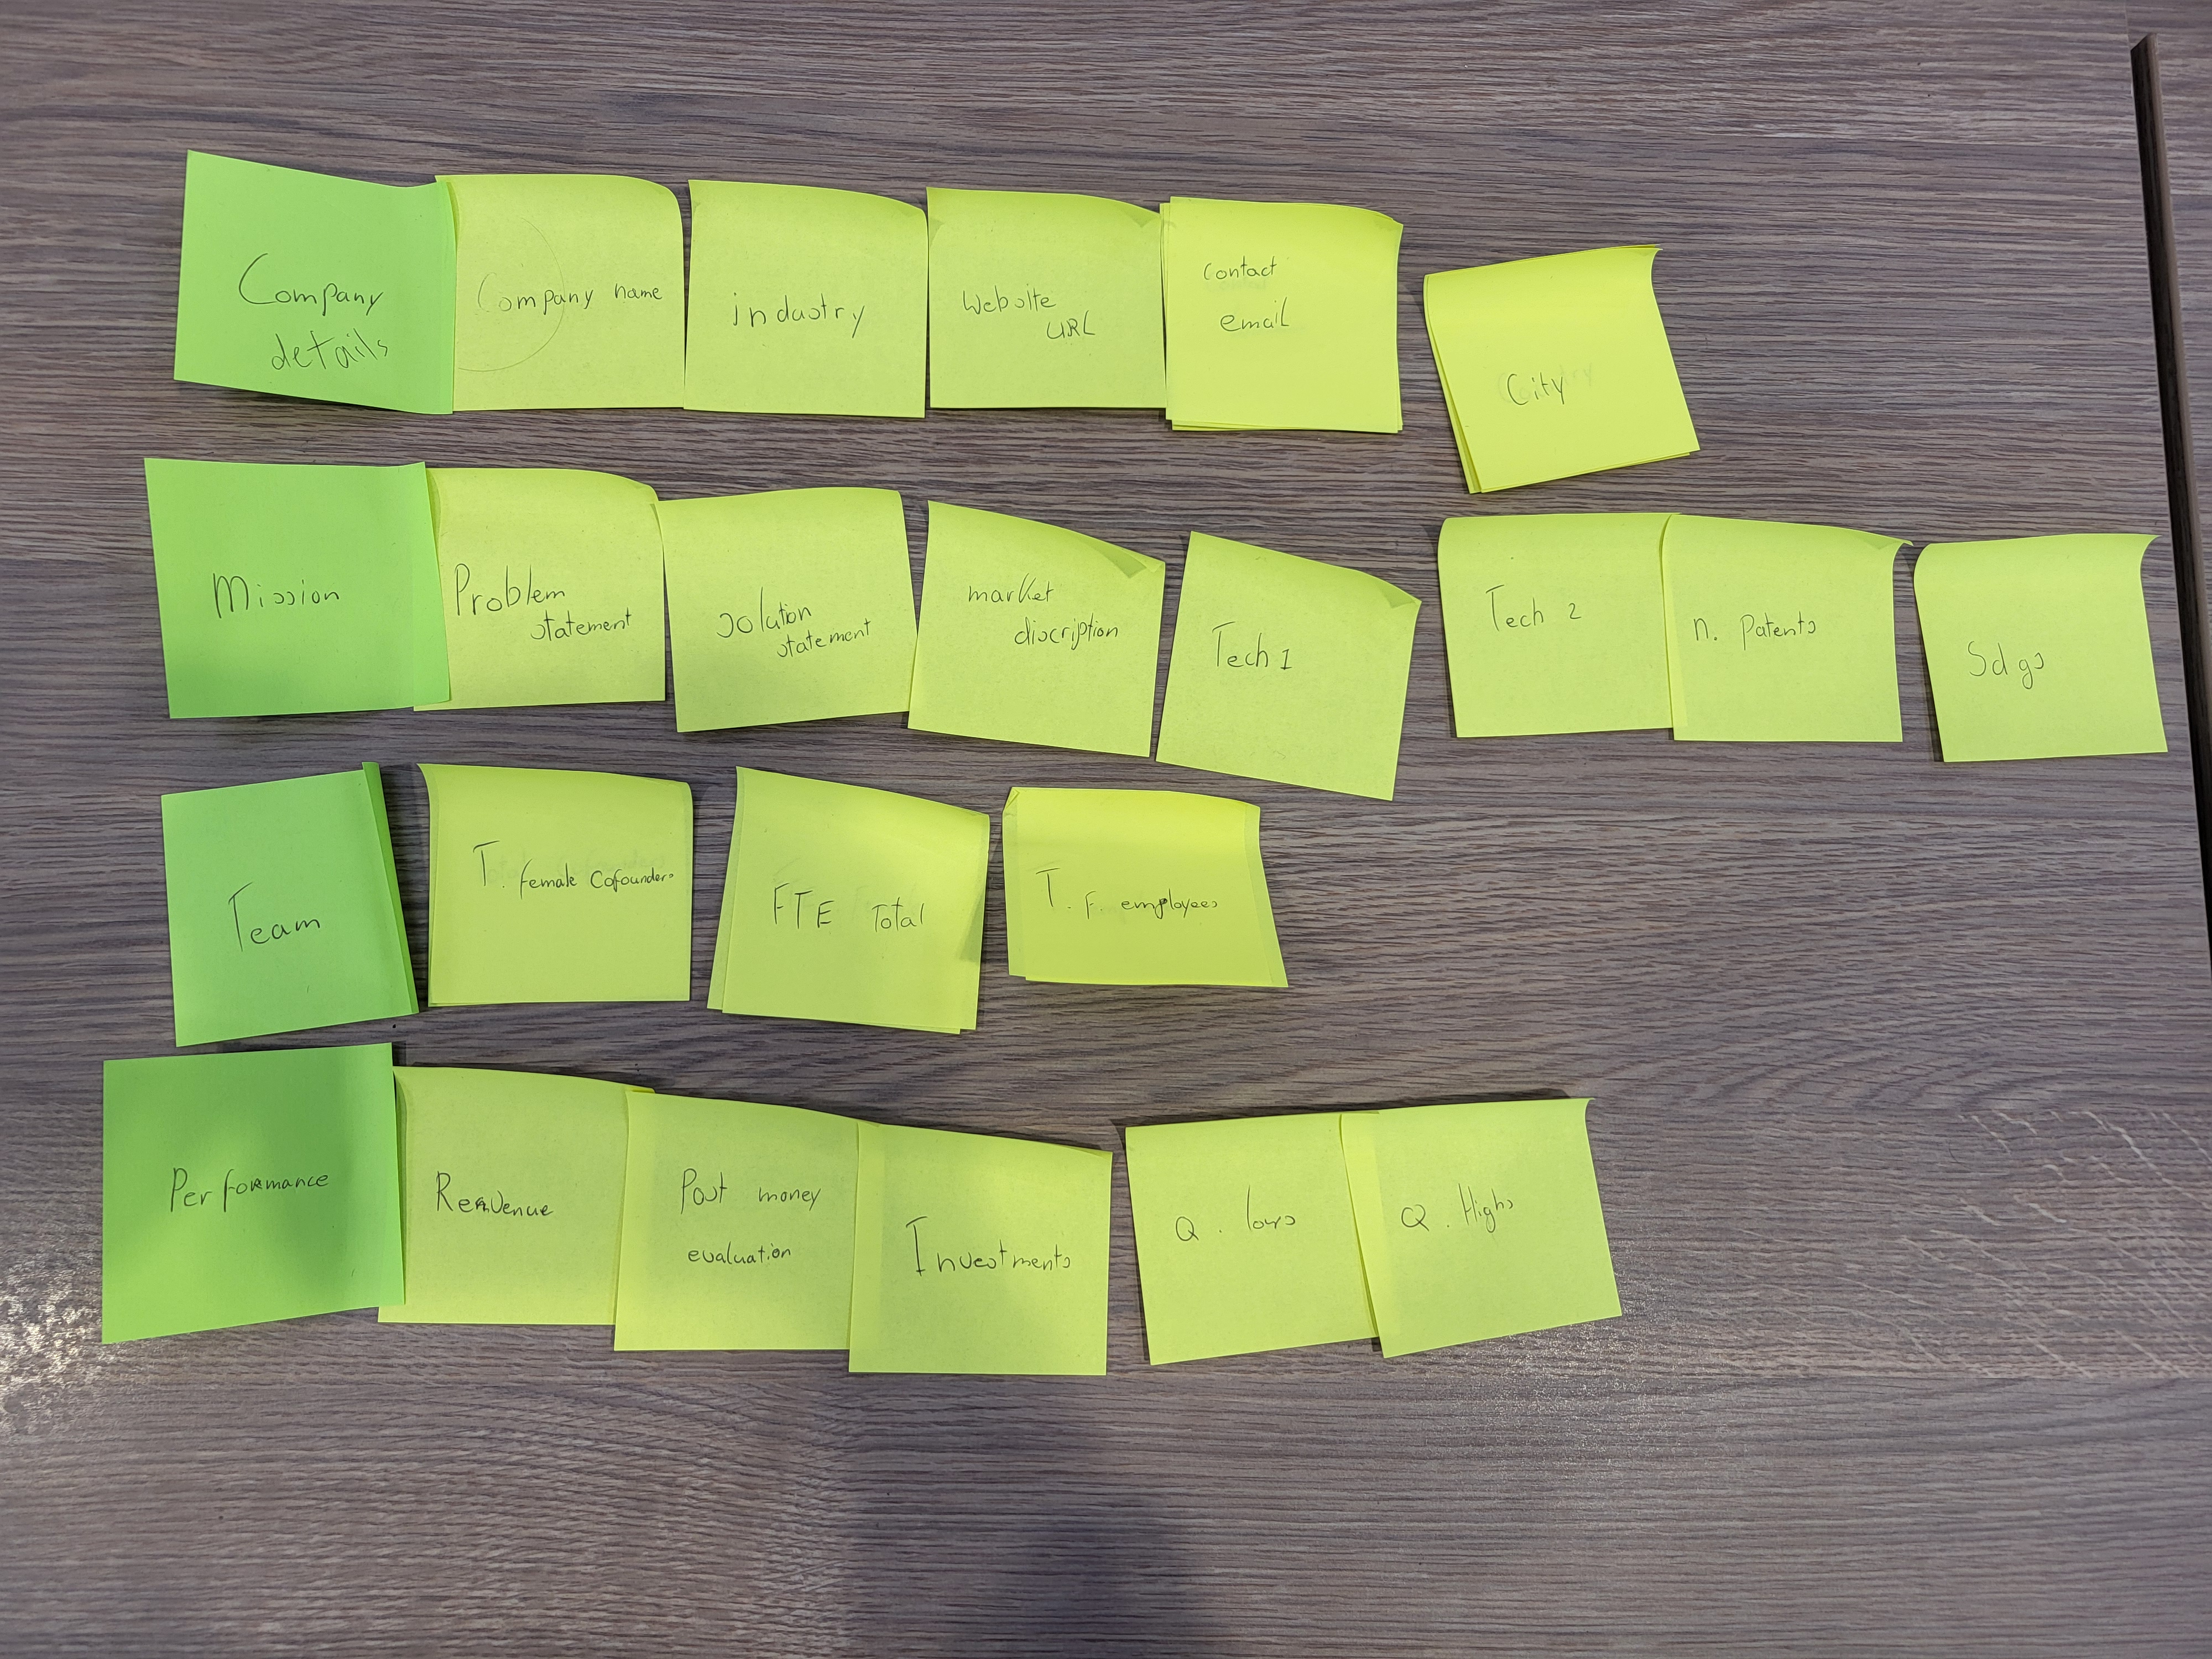 Company
details
Company name
industry
Website
URL
Contact
email
City
Mission
Problem
statement
solution
statement
market
discription
Tech 1
Tech 2
n. Patents
Sdgs
Team
T. female Cofounders
FTE Total
T. F. employees
Performance
Revenue
Post money
evaluation
Investments
Q. lows
Q. Highs